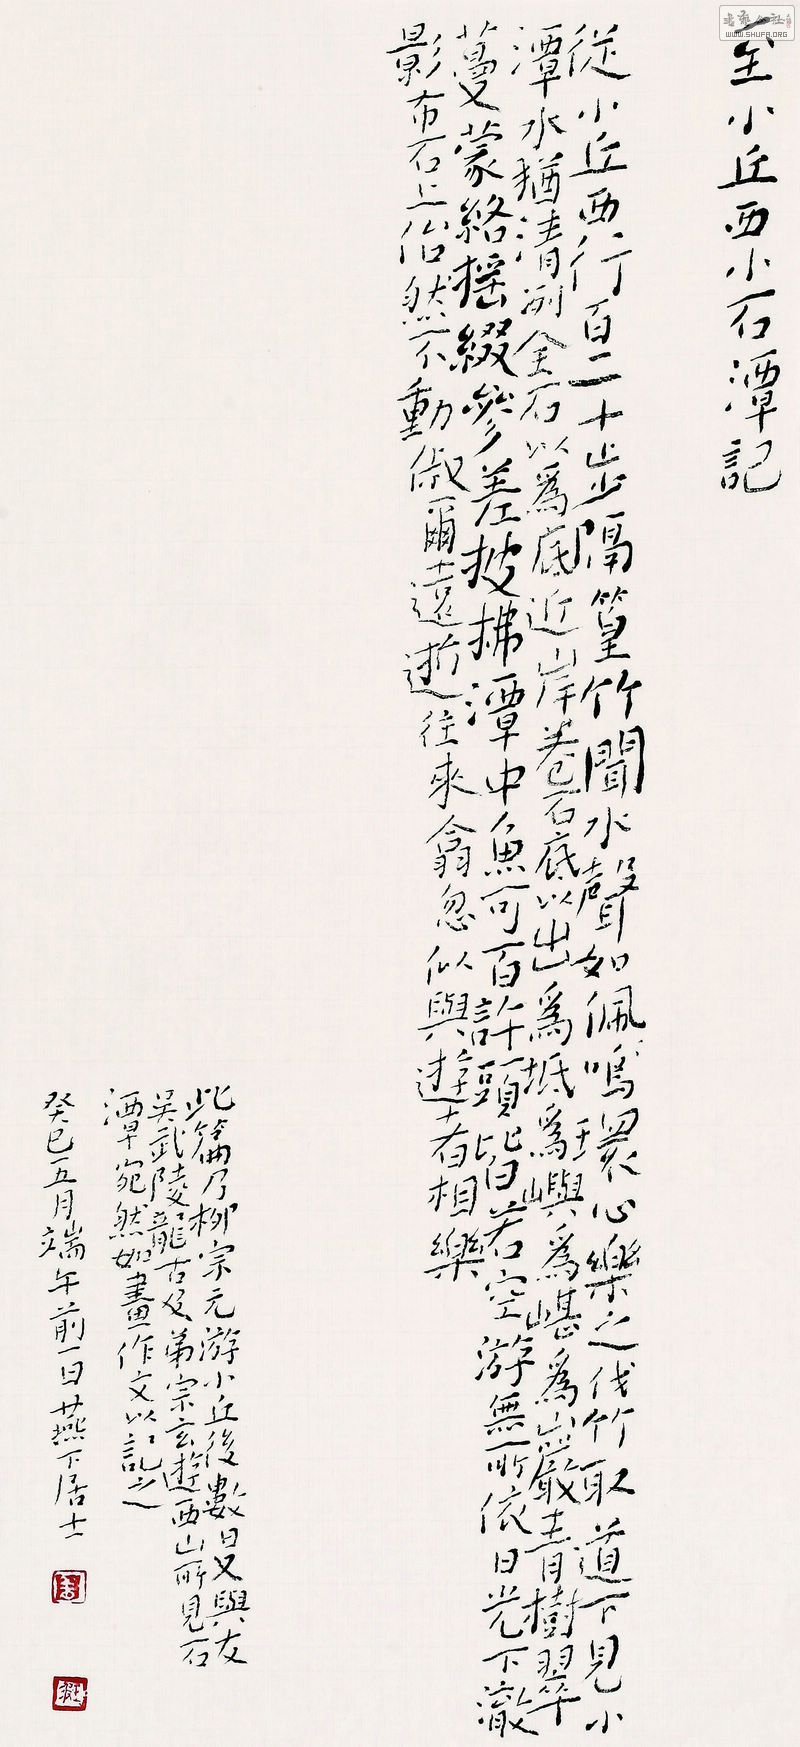 至小丘西小石潭記
從小丘西行百二十步隔篁竹聞水聲如佩鳴環心樂之伐竹取道下見小
潭水猶清冽全石以爲底近岸卷石底以出爲坻爲嶼爲嵁爲巖青樹翠
蔓蒙絡摇綴參差披拂潭中魚可百許頭皆若空游無所依日光下澈
影布石上佁然不動俶爾遠逝往來翕忽似與遊者相樂
此篇乃柳宗元游小丘後數日又與友
吳武陵龍古及弟宗玄遊西山所見石
潭宛然如畫作文以記之
癸巳五月端午前一日燕下居士
WWW.SHUFA.ORG